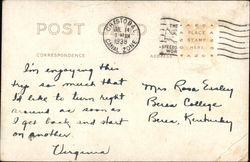 POST CARD
CRISTOBAL
JUL 14
1938
CANAL ZONE
CORRESPONDENCE
ADDRESS
PLACE
STAMP
HERE
I'm enjoying this
trip so much that
I'd like to turn right
around as soon as
I get back and start
on another.
Virginia
Miss Rosa Ensley
Berea College
Berea, Kentucky